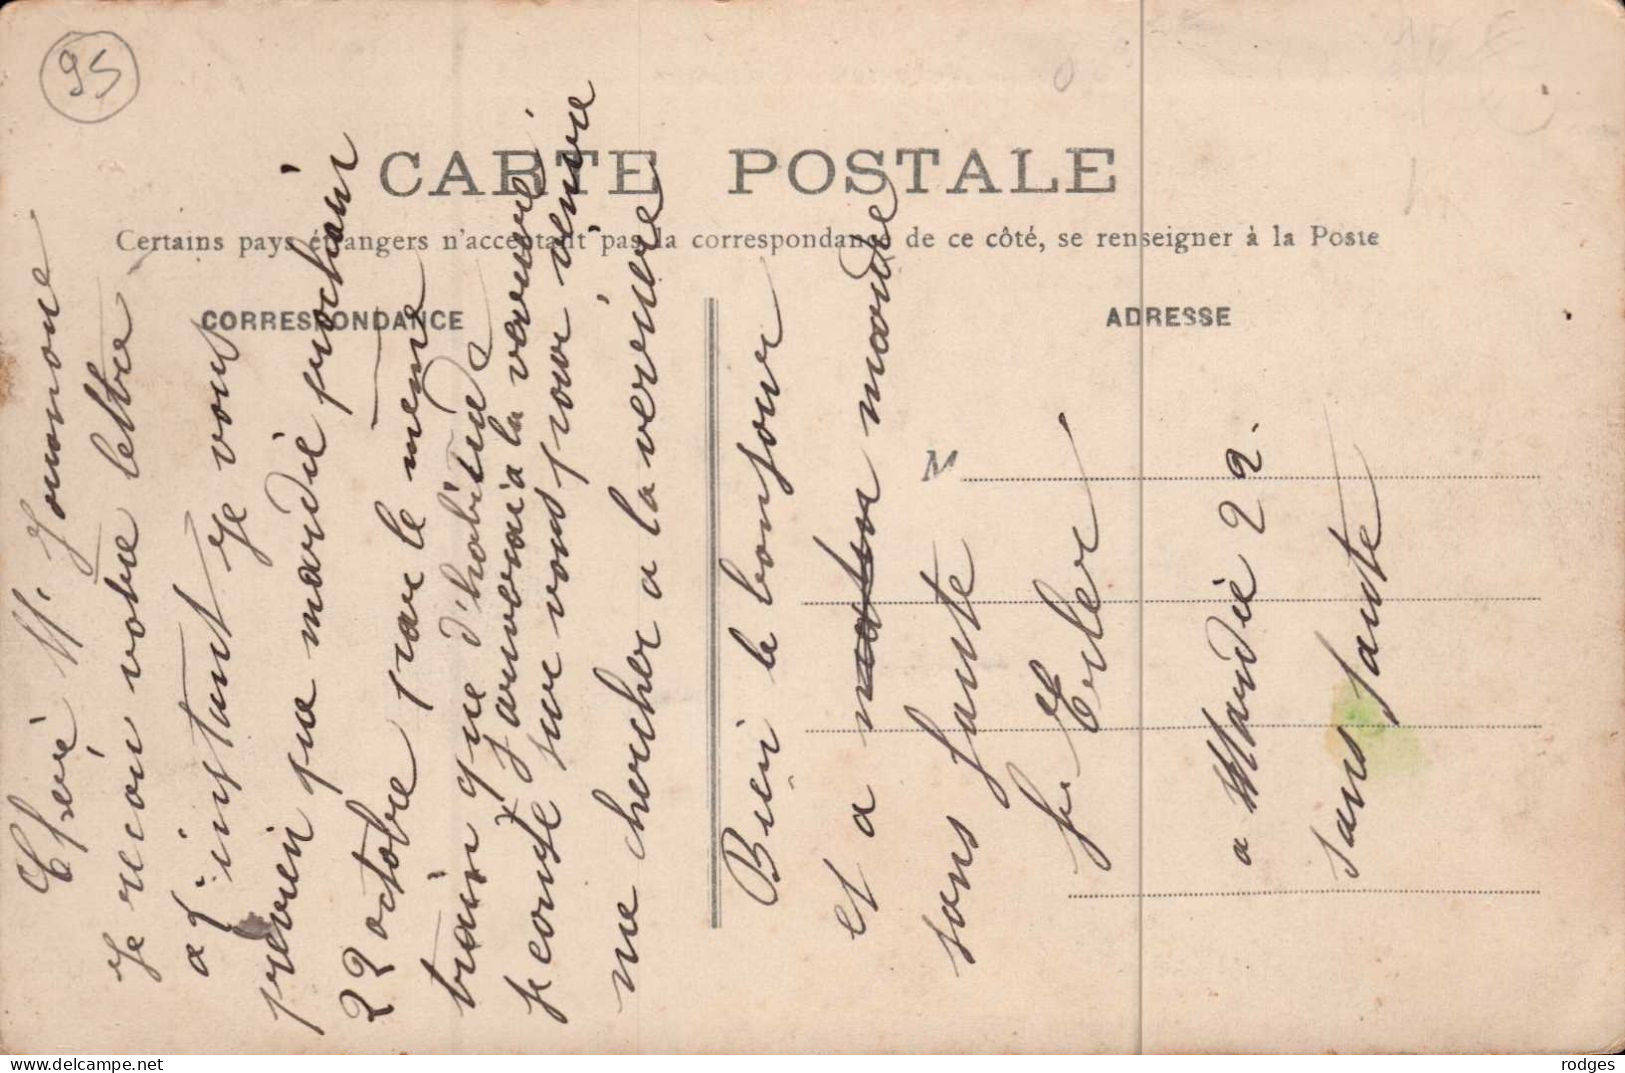 95
CARTE POSTALE
Certains pays étrangers n'acceptant pas la correspondance de ce côté, se renseigner à la Poste
CORRESPONDANCE
ADRESSE
M
Cherè Mr
Je recou votre lettre
a l'instant Je vous
previen que mardie prochain
22 octobre par le meme
train que d'habitude
J'arriverai a la verrerie
Je conte sur vous pour venir
me chercher a la vererie
Bien le bonjour
et a mador madre
sans faute
Je Erler
a Mardie 22.
sans faute
rodges